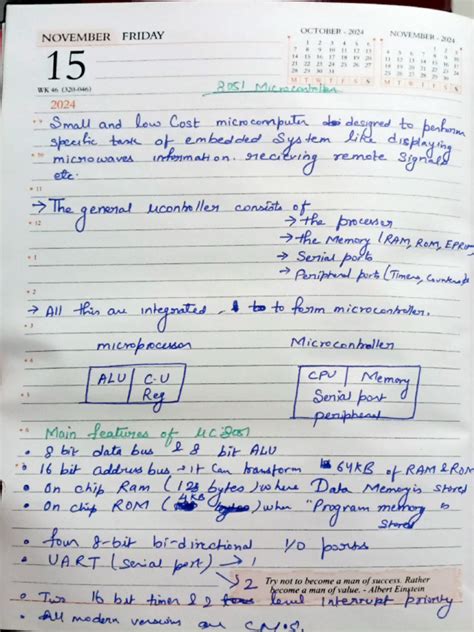 NOVEMBER FRIDAY
15
WK 46 (320-046)
2024
OCTOBER - 2024
NOVEMBER - 2024
8051 Microcontroller
Small and low Cost microcomputer designed to perform
specific task of embedded System like displaying
microwaves information. recieving remote Signals
etc.
→ The general ucontroller consists of
→ the processor
→ the Memory (RAM, ROM, EPROM
→ Serial ports
→ Peripheral ports (Timers, Counters
→ All this are integrated, to form microcontroller.
microprocessor Microcontroller
ALU C.U CPU Memory
Reg Serial port
peripheral
Main features of UC 8051
• 8 bit data bus & 8 bit ALU
• 16 bit address bus → it Can transform 64KB of RAM & ROM
• On chip Ram (128 bytes) where Data Memory is stored
• On chip ROM (4KB) when "Program memory is
stored
• four 8-bit bi-directional I/O ports
• UART (Serial port) → 1
→ 2
Try not to become a man of success. Rather
become a man of value. - Albert Einstein
• Two 16 bit timer & 2 level interrupt priority
• All modern versions are CMOS.